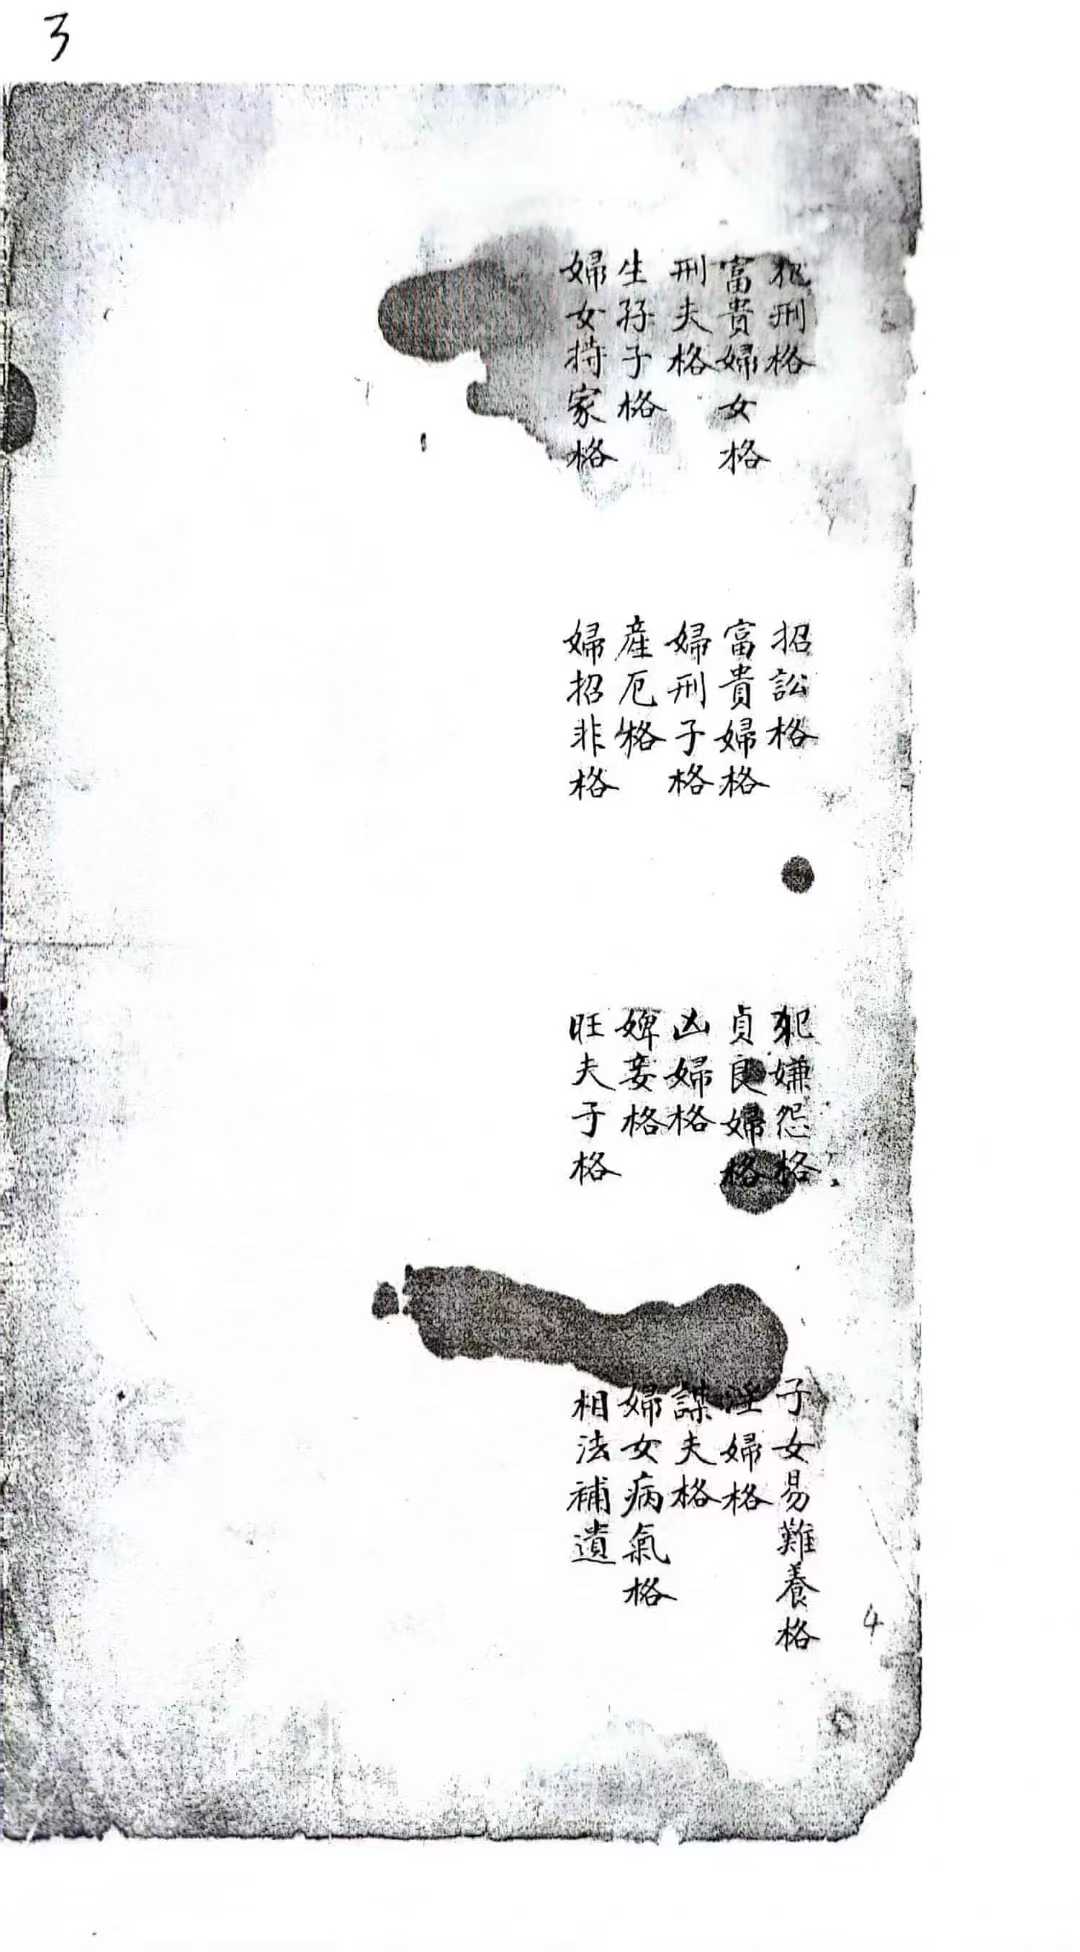 3
犯刑格 招訟格 犯嫌怨格 子女易難養格
富貴婦女格 富貴婦格 貞良婦格 淫婦格
刑夫格 婦刑子格 凶婦格 謀夫格
生孖子格 產厄格 婢妾格 婦女病氣格
婦女持家格 婦招非格 旺夫子格 相法補遺
4